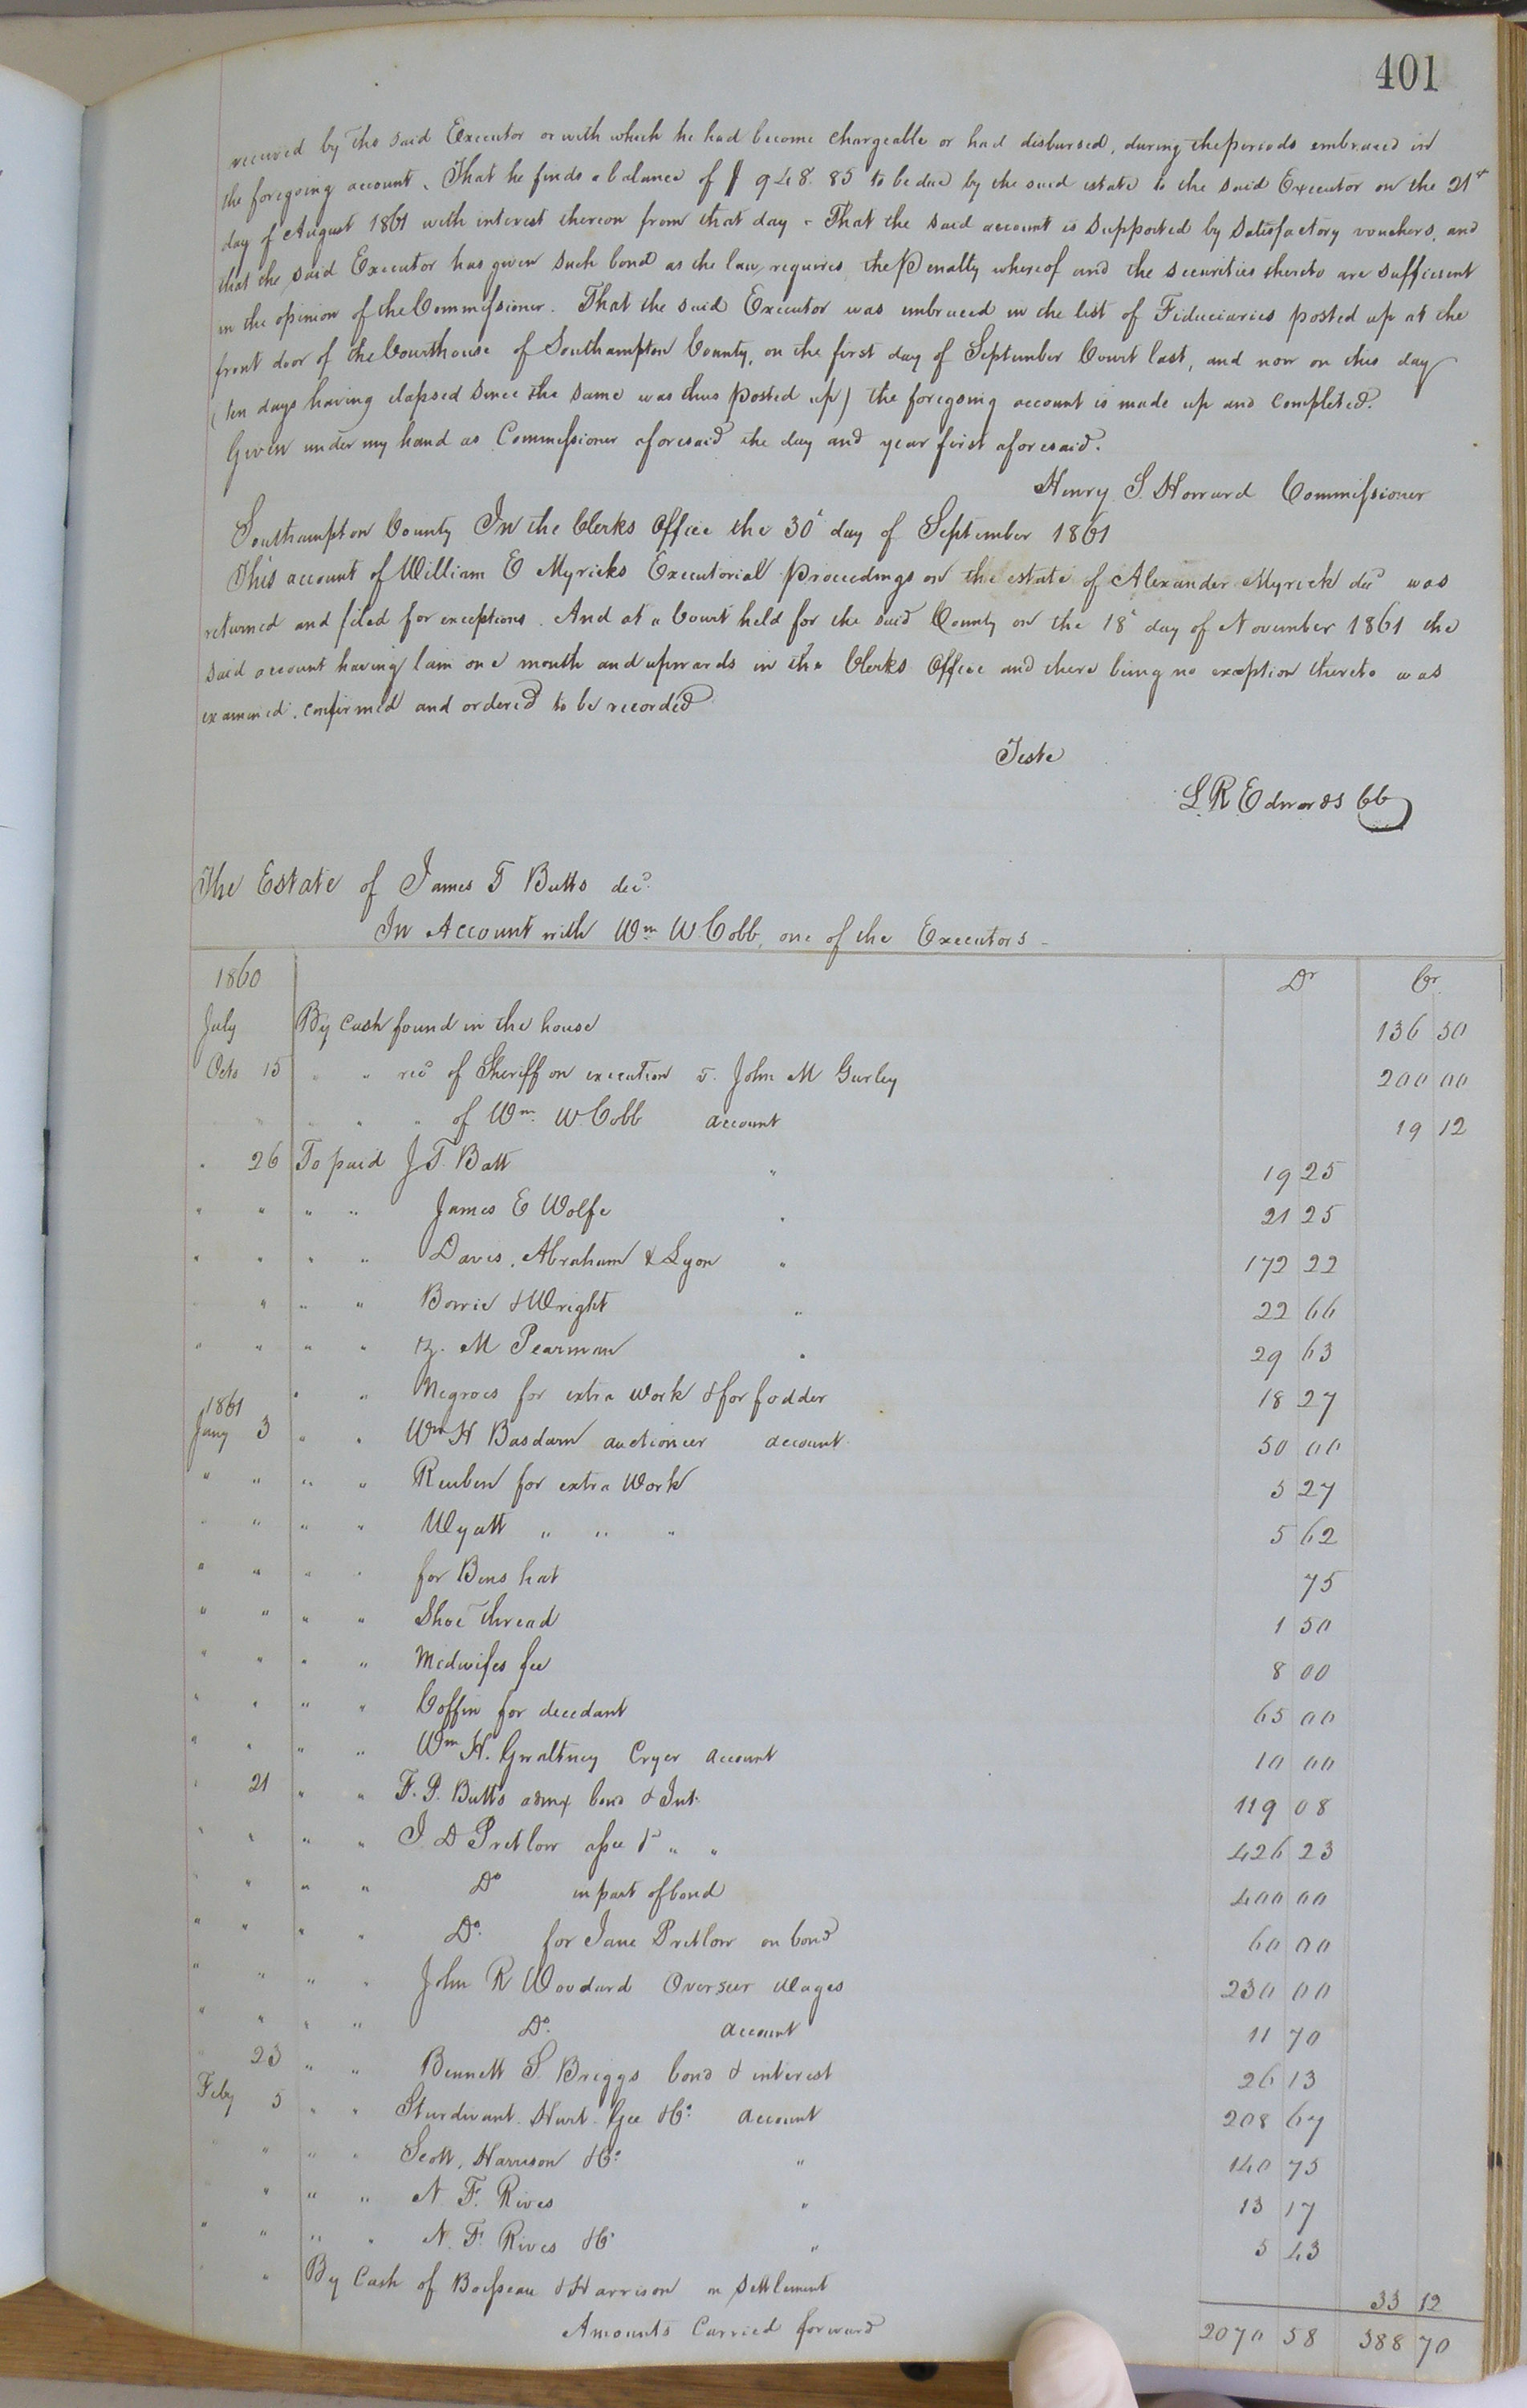 401
received by the said Executor or with which he had become chargeable or had disbursed, during the periods embraced in
the foregoing account. That he finds a balance of $948.85 to be due by the said estate to the said Executor on the 21st
day of August 1861 with interest thereon from that day - That the said account is supported by satisfactory vouchers, and
that the said Executor has given such bond as the law requires the Penalty whereof and the securities thereto are sufficient
in the opinion of the Commissioner. That the said Executor was embraced in the list of Fiduciaries posted up at the
front door of the Courthouse of Southampton County, on the first day of September Court last, and now on this day
(ten days having elapsed since the same was thus posted up) the foregoing account is made up and completed.
Given under my hand as Commissioner aforesaid the day and year first aforesaid.
Henry S. Howard Commissioner
Southampton County In the Clerks Office the 30th day of September 1861
This account of William E Myricks Executorial Proceedings on the estate of Alexander Myrick decd was
returned and filed for exceptions. And at a Court held for the said County on the 18th day of November 1861 the
said account having lain one month and upwards in the Clerks Office and there being no exception thereto was
examined, confirmed and ordered to be recorded
Teste
L R Edwards CC
The Estate of James T Butts decd.
In Account with Wm W Cobb, one of the Executors -
1860 Dr Cr
July By Cash found in the house 136 50
Octo 15 " " recd of Sheriff on execution v. John M Gurley 200 00
" " " of Wm W Cobb account 19 12
" 26 To paid J T. Batt " 19 25
" " " " James E Wolfe " 21 25
" " " " Davis, Abraham & Lyon " 172 22
" " " " Borrie & Wright " 22 66
" " " " M Pearman " 29 63
" " Negroes for extra work & for fodder 18 27
1861
Jany 3 " " Wm H auctioneer account 50 00
" " " " Reuben for extra work 5 27
" " " " Wyatt " " " 5 62
" " " " for Bens hat 75
" " " " Shoe thread 1 50
" " " " Midwifes fee 8 00
" " " " Coffin for decedant 65 00
" " " " Wm H. Gwaltney Cryer account 10 00
" 21 " " F. P. Butts admx bond & Int. 119 08
" " " " J D Pretlow assee " " 426 23
" " " " Do in part of bond 400 00
" " " " Do. for Jane Pretlow on bond 60 00
" " " " John R Woodard Overseer Wages 230 00
" " " " Do. account 11 70
" 23 " " Bennett S. Briggs bond & interest 26 13
Feby 5 " " Sturdivant Hurt Gee & Co. account 208 67
" " " " Scott, Harrison & Co. " 140 75
" " " " N. F. Rives " 13 17
" " " " N. F. Rives & Co " 5 43
" " By Cash of Boisseau & Harrison on settlement 33 12
Amounts Carried forward 2070 58 388 70